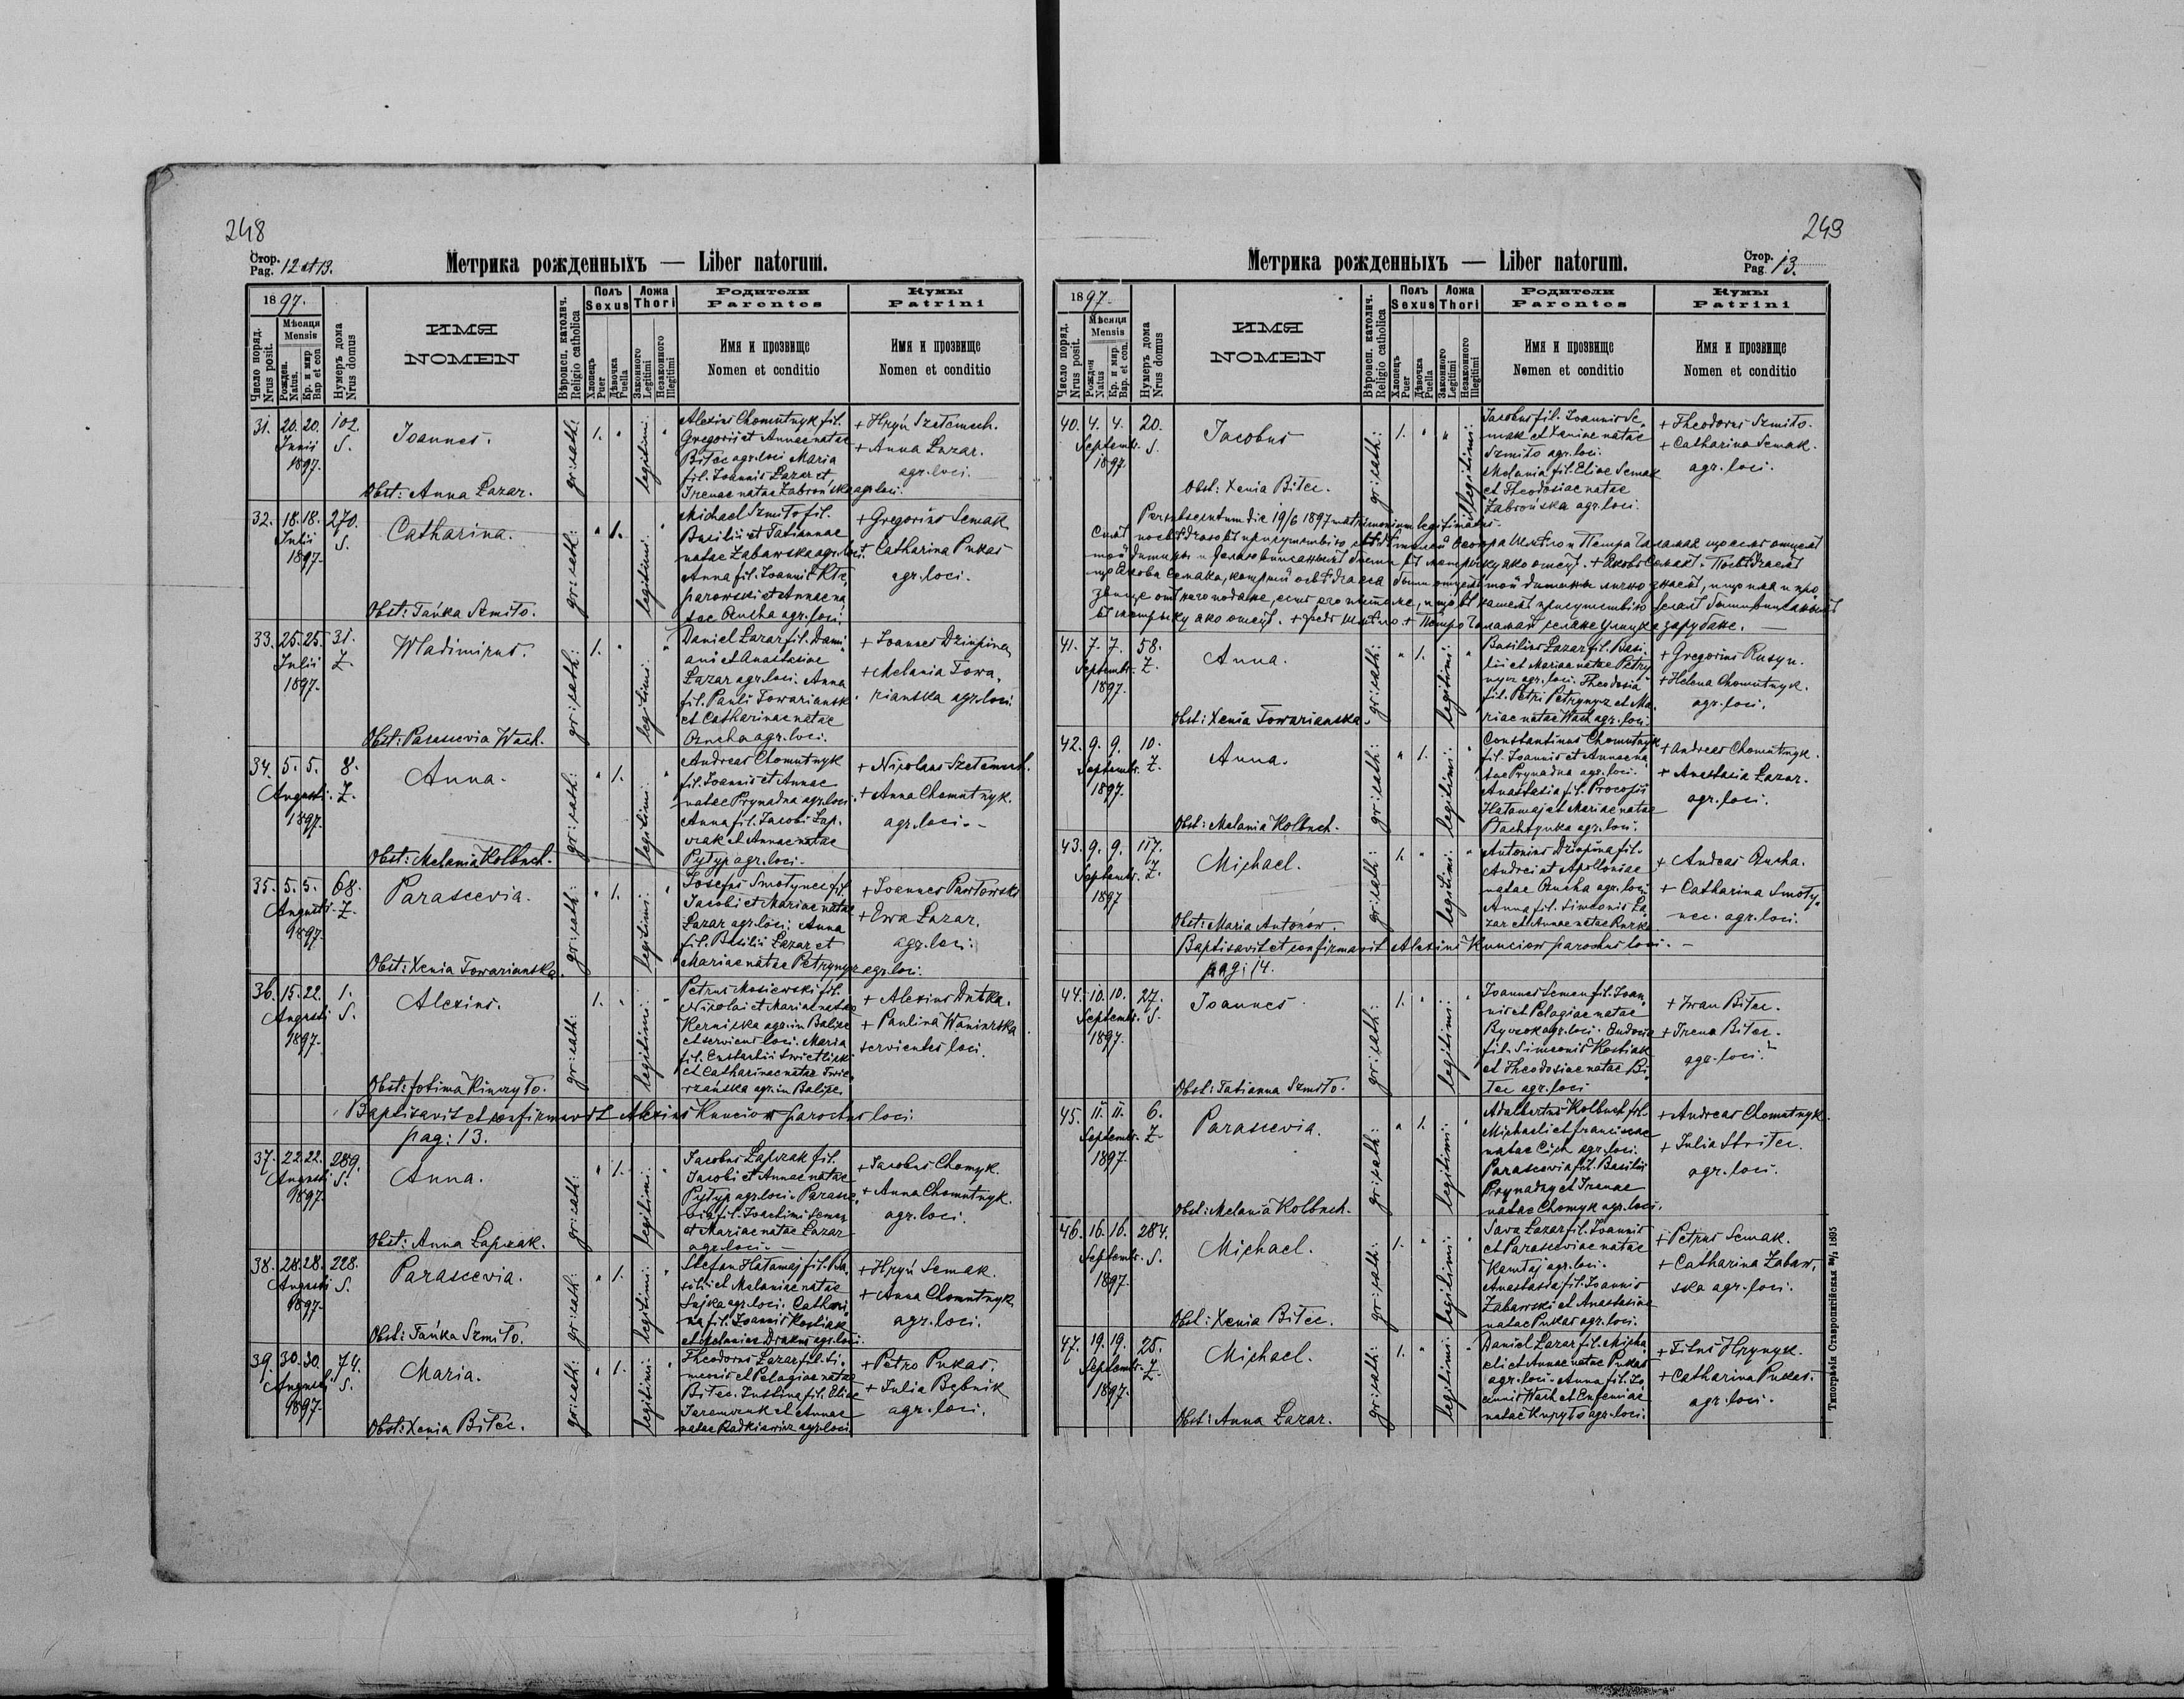 248
Стор.
Pag. 12 et 13.
Метрика рожденныхъ — Liber natorum.
1897.
Число поряд.
Nrus posit.
Мѣсяця
Mensis
Рожден.
Natus.
Кр. и мир
Bap et con
Нумеръ дома
Nrus domus
ИМЯ
NOMEN
Вѣроисп. католич.
Religio catholica
Полъ
Sexus
Хлопецъ
Puer
Дѣвочка
Puella
Ложа
Thori
Законного
Legitimi
Незаконного
Illegitimi
Родители
Parentes
Имя и прозвище
Nomen et conditio
Кумы
Patrini
Имя и прозвище
Nomen et conditio
31. 20. 20. 102.
Junii S.
1897.
Joannes.
Obst: Anna Lazar.
gr: cath: 1. " legitimi: "
Alexius Chomutnyk fil.
Gregorii et Annae natae
Bitec agr. loci Maria
fil. Joannis Lazar et
Irenae natae Zabrońska agr. loci.
+ Hryń Szeremech.
+ Anna Lazar.
agr. loci.
32. 18. 18. 270.
Julii S.
1897.
Catharina.
Obst: Tańka Szmiło.
gr: cath: " 1. legitimi: "
Michael Szmiło fil.
Basilii et Tatiannae
natae Zabawska agr. loci.
Anna fil. Joannis
parowski et Annae na
tae Oncha agr. loci.
+ Gregorius Semak
+ Catharina Pukas
agr. loci.
33. 25. 25. 31.
Julii Z.
1897.
Wladimirus.
Obst: Parascevia Wach.
gr: cath: 1. " legitimi: "
Daniel Lazar fil. Dami
ani et Anastasiae
Lazar agr. loci. Anna
fil. Pauli Towariansk
et Catharinae natae
Oncha agr. loci.
+ Joannes Dziopina
+ Melania Towa,
rianska agr. loci
34. 5. 5. 8.
Augusti. Z.
1897.
Anna.
Obst: Melania Kolbuch.
gr: cath: " 1. legitimi: "
Andreas Chomutnyk
fil. Joannis et Annae
natae Prynadna agr. loci.
Anna fil. Jacobi Lap,
czak et Annae natae
Pytyp agr. loci.
+ Nicolaus Szeremech.
+ Anna Chomutnyk.
agr. loci.
35. 5. 5. 68.
Augusti. Z.
1897.
Parascevia.
Obst: Xenia Towarianska.
gr: cath: " 1. legitimi: "
Josephus Smotynec fil.
Jacobi et Mariae natae
Lazar agr. loci; Anna
fil. Basilii Lazar et
Mariae natae Petrynyz agr. loci.
+ Joannes Pawłowski
+ Ewa Lazar.
agr. loci.
36. 15. 22. 1.
Augusti S.
1897.
Alexius.
Obst: Fotima Kinczyło.
gr: cath: 1. " legitimi: "
Petrus Mosiewski fil.
Nikolai et Mariae natae
Kerniska agr. in Balice
et serviens loci. Maria
fil. Eustachii Swietlicki
et Catharinae natae Twie,
rzańska agr. in Balice.
+ Alexius Dutka.
+ Paulina Waniurska
servientes loci.
Baptisavit et confirmavit Alexius Kunciow parochus loci
pag: 13.
37. 22. 22. 289.
Augusti S.
1897.
Anna.
Obst: Anna Lapczak.
gr: cath: " 1. legitimi: "
Jacobus Lapczak fil.
Jacobi et Annae natae
Pytyp agr. loci. Parasce
via fil. Joachimi Semen
et Mariae natae Lazar
agr. loci.
+ Jacobus Chomyk.
+ Anna Chomutnyk.
agr. loci.
38. 28. 28. 228.
Augusti S.
1897.
Parascevia.
Obst: Tańka Szmiło.
gr: cath: " 1. legitimi: "
Stefan Hałamaj fil. Ba,
silii et Melaniae natae
Sajka agr. loci. Cathari,
na fil. Joannis Kostiak
et Melaniae Drakus agr. loci.
+ Hryń Semak.
+ Anna Chomutnyk
agr. loci.
39. 30. 30. 74.
Augusti S.
1897.
Maria.
Obst: Xenia Bitec.
gr: cath: " 1. legitimi: "
Theodorus Lazar fil. Si,
meonis et Pelagiae natae
Bitec. Justina fil. Eliae
Jaremczuk et Annae
natae Radkiewicz agr. loci
+ Petro Pukas.
+ Julia Bębnik
agr. loci.
249
Стор.
Pag. 13.
Метрика рожденныхъ — Liber natorum.
1897.
Число поряд.
Nrus posit.
Мѣсяця
Mensis
Рожден
Natus
Кр. и мир.
Bap. et con.
Нумеръ дома
Nrus domus
ИМЯ
NOMEN
Вѣроисп. католич.
Religio catholica
Полъ
Sexus
Хлопецъ
Puer
Дѣвочка
Puella
Ложа
Thori
Законного
Legitimi
Незаконного
Illegitimi
Родители
Parentes
Имя и прозвище
Nomen et conditio
Кумы
Patrini
Имя и прозвище
Nomen et conditio
40. 4. 4. 20.
Septembr. S.
1897.
Jacobus
Obst: Xenia Bitec.
gr: cath: 1. " " illegitimi:
Jacobus fil. Joannis Se,
mak et Xeniae natae
Szmiło agr. loci.
Melania fil. Eliae Semak
et Theodosiae natae
Zabrońska agr. loci.
+ Theodorus Szmiło.
+ Catharina Semak.
agr. loci.
Per subsecutum die 19/6 1897 matrimonium legitimatus.
41. 7. 7. 58.
Septembr. Z.
1897.
Anna.
Obst: Xenia Towarianska.
gr: cath: " 1. legitimi: "
Basilius Lazar fil. Basi,
lii et Mariae natae Petry
nycz agr. loci. Theodosia
fil. Petri Petrynycz et Ma,
riae natae Wach agr. loci.
+ Gregorius Rusyn.
+ Helena Chomutnyk.
agr. loci.
42. 9. 9. 10.
Septembr. Z.
1897.
Anna.
Obst: Melania Kolbuch.
gr: cath: " 1. legitimi: "
Constantinus Chomutnyk
fil. Joannis et Annae na
tae Prynadna agr. loci.
Anastasia fil. Procopii
Hałamaj et Mariae natae
Płachtynka agr. loci.
+ Andreas Chomutnyk.
+ Anastasia Lazar.
agr. loci.
43. 9. 9. 117.
Septembr. Z.
1897
Michael.
Obst: Maria Antonów.
gr: cath: 1. " legitimi: "
Antonius Dziopina fil.
Andrei et Apolloniae
natae Oncha agr. loci
Anna fil. Simeonis La
zar et Annae natae Kurka
+ Andeas Oncha.
+ Catharina Smoty,
nec. agr. loci.
Baptisavit et confirmavit Alexius Kunciow parochus loci.
pag: 14.
44. 10. 10. 27.
Septembr. S.
1897.
Joannes
Obst: Tatianna Szmiło.
gr: cath: 1. " legitimi: "
Joannes Semen fil. Joan,
nis et Pelagiae natae
Byczok agr. loci. Eudocia
fil. Simeonis Kostiak
et Theodosiae natae Bi
tec agr. loci
+ Iwan Bitec.
+ Irena Bitec.
agr. loci.
45. 11. 11. 6.
Septembr. Z.
1897.
Parascevia.
Obst: Melania Kolbuch.
gr: cath: " 1. legitimi: "
Adalbertus Kolbuch fil.
Michaeli et Franciscae
natae Cich agr. loci.
Parascevia fil. Basilii
Prynadny et Irenae
natae Chomyk agr. loci.
+ Andreas Chomutnyk.
+ Julia Strilec.
agr. loci.
46. 16. 16. 284.
Septembr. S.
1897.
Michael.
Obst: Xenia Bitec.
gr: cath: 1. " legitimi: "
Sava Lazar fil. Joannis
et Parasceviae natae
Kawtaj agr. loci.
Anastasia fil. Joannis
Zabawski et Anastasiae
natae Pukas agr. loci.
+ Petrus Semak.
+ Catharina Zabaw,
ska agr. loci.
47. 19. 19. 25.
Septembr. Z.
1897.
Michael.
Obst: Anna Lazar.
gr: cath: 1. " legitimi: "
Daniel Lazar fil. Micha
eli et Annae natae Pukas
agr. loci. Anna fil. Jo
annis Wach et Eufemiae
natae Kupyło agr. loci.
+ Titus Hrynyk.
+ Catharina Pukas.
agr. loci.
Типографія Ставропигійская 1895